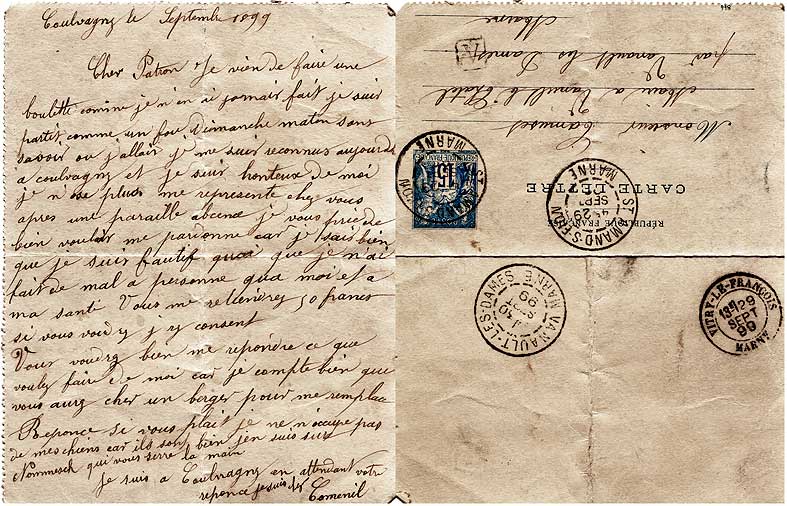 Coulvagny le Septembre 1899
Cher Patron Je vien de faire une
boulette comme je n'en ai jamais fait je suis
partit comme un fou Dimanche matin sans
savoir ou j'allai je me suis reconnus aujourdui
a coulvagny et je suis honteux de moi
je n'ose plus me represente chez vous
apres une paraille abcence je vous prie de
bien vouloir me pardonne car je sais bien
que je suis fautif quoi que je n'ai
fait de mal a personne qua moi et a
ma santi Vous me retiendrez 50 francs
si vous voudrz j'y consent
Vous voudrez bien me repondre ce que
voulez faire de moi car je compte bien que
vous aurz cher un berger pour me remplac
Reponce si vous plait je ne m'occupe pas
de mes chiens car ils sont bien j'en suis sur
qui vous serre la main
je suis a Coulvagny en attendant votre
reponce je suis
Monsieur Camuset
a Vanault le Chatel
par Vanault les Dames
Marne
RÉPUBLIQUE FRANÇAISE
CARTE LETTRE
15
ST MARD-S-LE-MT
MARNE
4E 29
SEPT
VANAULT-LES-DAMES
MARNE
30
SEPT
99
VITRY-LE-FRANÇOIS
13E 29
SEPT
99
MARNE